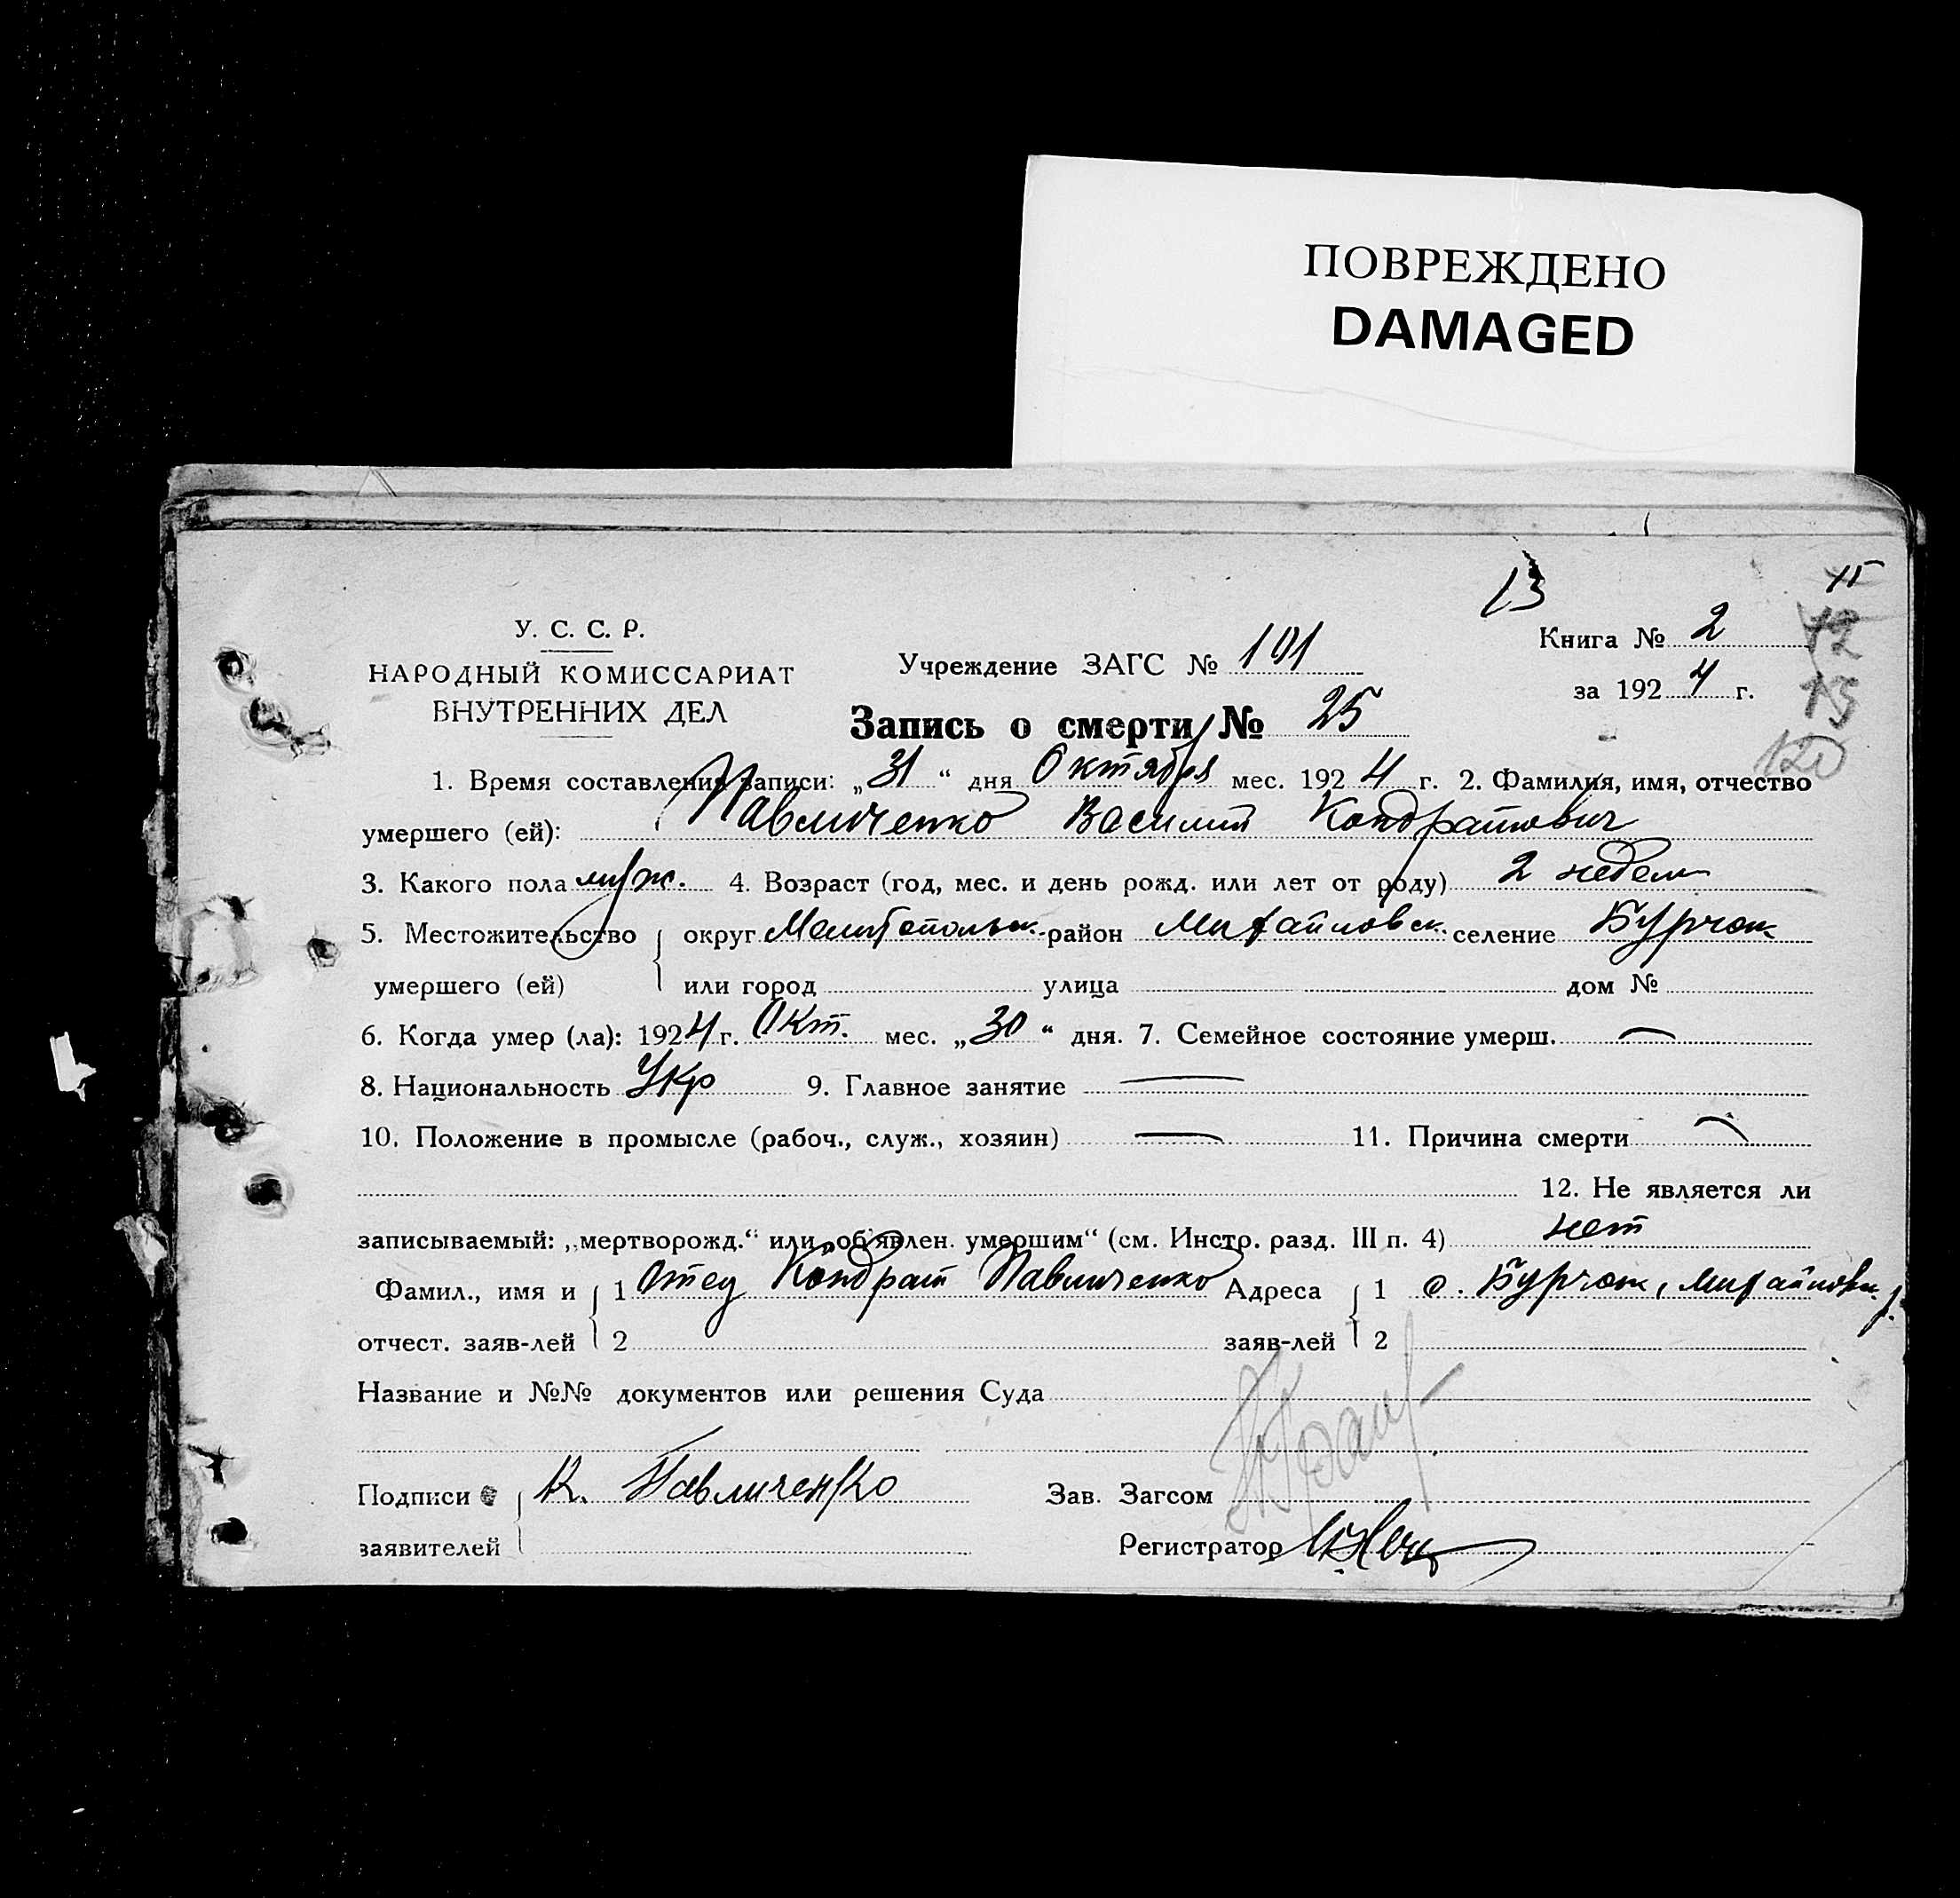 ПОВРЕЖДЕНО
DAMAGED
13
15
У. С. С. Р.
НАРОДНЫЙ КОМИССАРИАТ
ВНУТРЕННИХ ДЕЛ
Учреждение ЗАГС № 191
Книга № 2
за 1924 г.
12
15
120
Запись о смерти № 25
1. Время составления записи: „31“ дня Октября мес. 1924 г. 2. Фамилия, имя, отчество
умершего (ей): Павличенко Василий Кондратович
3. Какого пола муж. 4. Возраст (год, мес. и день рожд. или лет от роду) 2 недели
5. Местожительство округ Мелитопольск. район Михайловск. селение Бурчак
умершего (ей) или город улица дом №
6. Когда умер (ла): 1924 г. Окт. мес. „30“ дня. 7. Семейное состояние умерш. —
8. Национальность Укр 9. Главное занятие —
10. Положение в промысле (рабоч., служ., хозяин) — 11. Причина смерти —
12. Не является ли
записываемый: „мертворожд.“ или „об'явлен. умершим“ (см. Инстр. разд. III п. 4) нет
Фамил., имя и 1 Отец Кондрат Павличенко Адреса 1 с. Бурчак, Михайловск. р.
отчест. заяв-лей 2 заяв-лей 2
Название и №№ документов или решения Суда
Подписи К. Павличенко Зав. Загсом
заявителей Регистратор